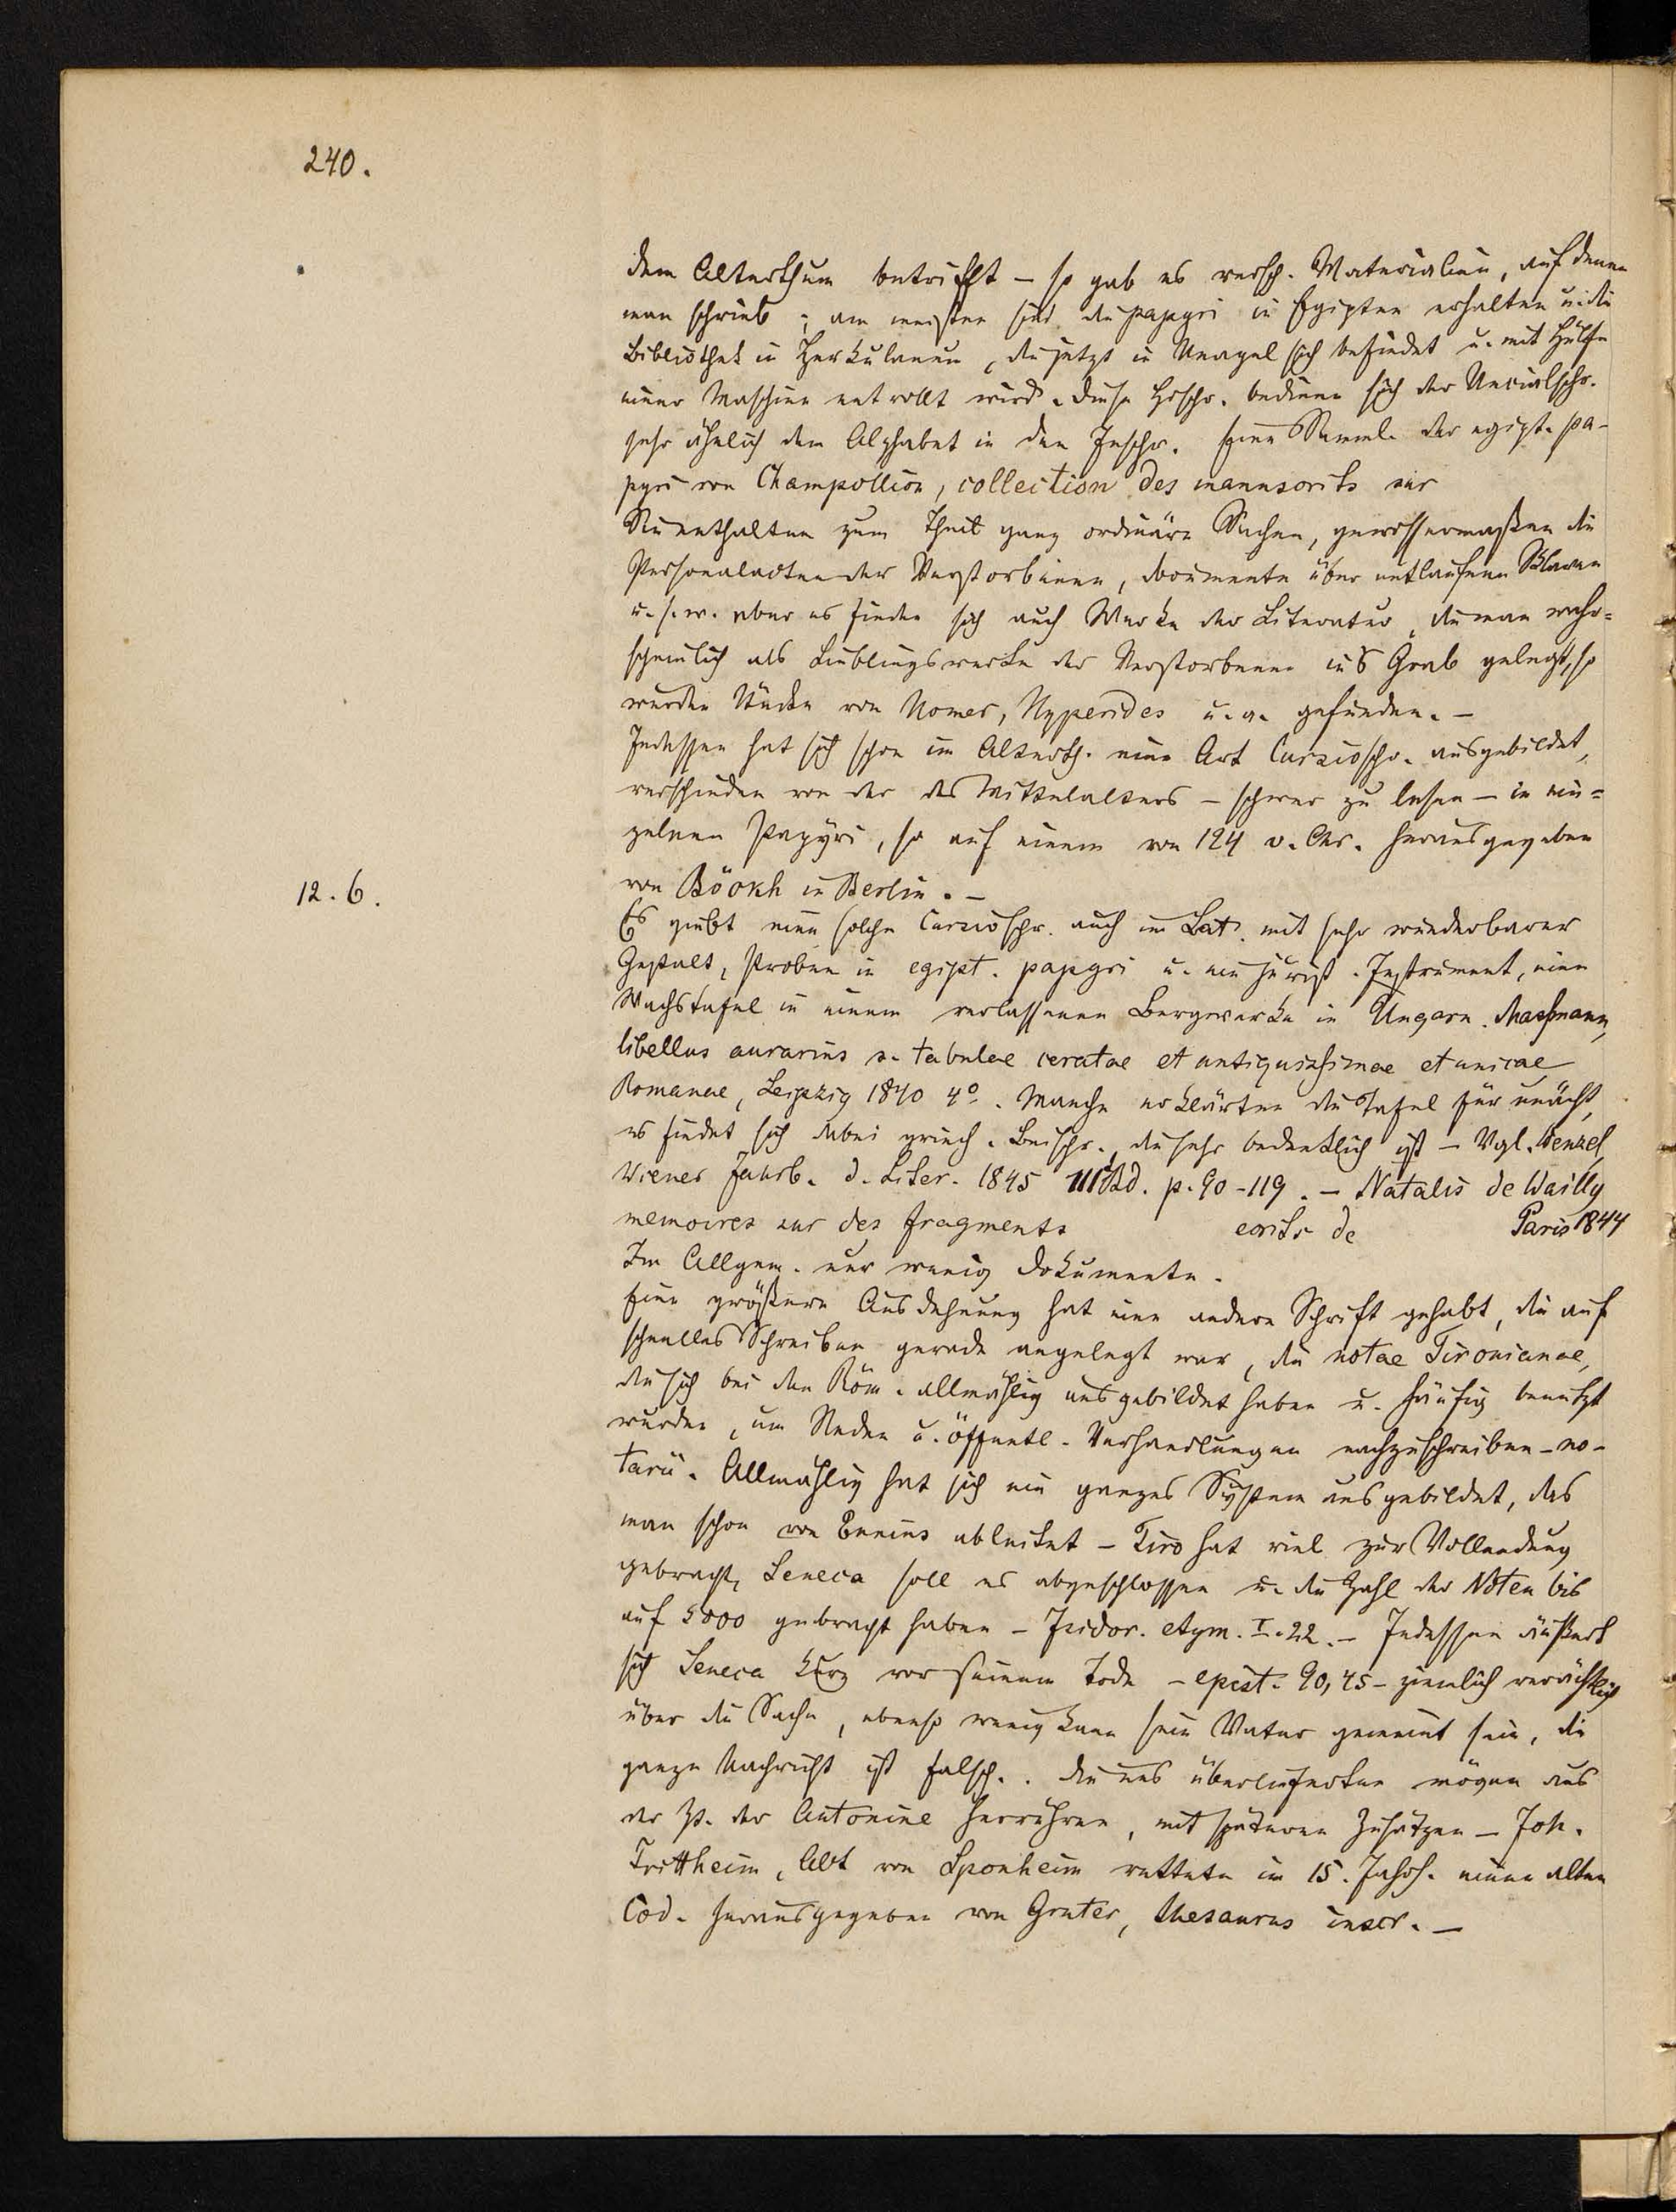 240.
dem Alterthum betrifft – so gab es versch. Materialien, auf denen
man schrieb; am meisten sind die papyri in Egipten erhalten u. die
Bibliothek in Herkulanum, die jetzt in Neapel sich befindet u. mit Hülfe
einer Maschine entrollt wird. Diese Hschr. bedienen sich der Uncialschr.
sehr ähnlich dem Alphabet in den Inschr. Eine Samml. der egipt. pa-
pyri von Champollion, collection des manuscrits sur
Sie enthalten zum Theil ganz ordinäre Sachen, gewissermaßen die
Personalacten der Verstorbenen, documente über entlaufene Sklaven
u. s. w. aber es finden sich auch Werke der Literatur, die man wahr=
scheinlich als Lieblingswerke der Verstorbenen ins Grab gelegt, so
wurden Stücke von Homer, Hyperides u. a. gefunden. –
Indessen hat sich schon im Alterth. eine Art Cursivschr. ausgebildet,
verschieden von der des Mittelalters – schwer zu lesen – in ein=
zelnen Papyri, so auf einem von 124 v. Chr. herausgegeben
von Böckh in Berlin. –
12. 6.
Es giebt eine solche Cursivschr. auch im Lat. mit sehr wunderbarer
Gestalt, Proben in egipt. papyri u. ein jurist. Instrument, eine
Wachstafel in einem verlassenen Bergwerke in Ungarn. Maßmann,
libellus aurarius s. tabulae ceratae et antiquissimae et unicae
Romanae, Leipzig 1840 4º. Manche erklärten die Tafel für unächt,
es findet sich dabei griech. Beischr., die sehr bedenklich ist – Vgl. Wenzel,
Wiener Jahrb. d. Liter. 1845 111 Bd. p. 90-119. – Natalis de Wailly
memoires sur des fragments ecrits de Paris 1844
Im Allgem. nur wenig Dokumente.
Eine größere Ausdehnung hat eine andere Schrift gehabt, die auf
schnelles Schreiben gerade angelegt war, die notae Tironianae,
die sich bei den Röm. allmählig ausgebildet haben u. häufig benutzt
wurden, um Reden u. öffentl. Verhandlungen nachzuschreiben – no-
tarii. Allmählig hat sich ein ganzes System ausgebildet, das
man schon von Ennius ableitet – Tiro hat viel zur Vollendung
gebracht, Seneca soll es abgeschlossen u. die Zahl der Noten bis
auf 5000 gebracht haben – Isidor. etym. I. 22. – Indessen äußert
sich Seneca kurz vor seinem Tode – epist. 90, 25 – ziemlich verächtlich
über die Sache, ebenso wenig kann sein Vater gemeint sein, die
ganze Nachricht ist falsch. . Die uns überlieferten mögen aus
der Zt. der Antonine herrühren, mit späteren Zusätzen – Joh.
Trittheim, Abt von Sponheim rettete im 15. Jahrh. einen alten
Cod. herausgegeben von Gruter, thesaurus inscr. –